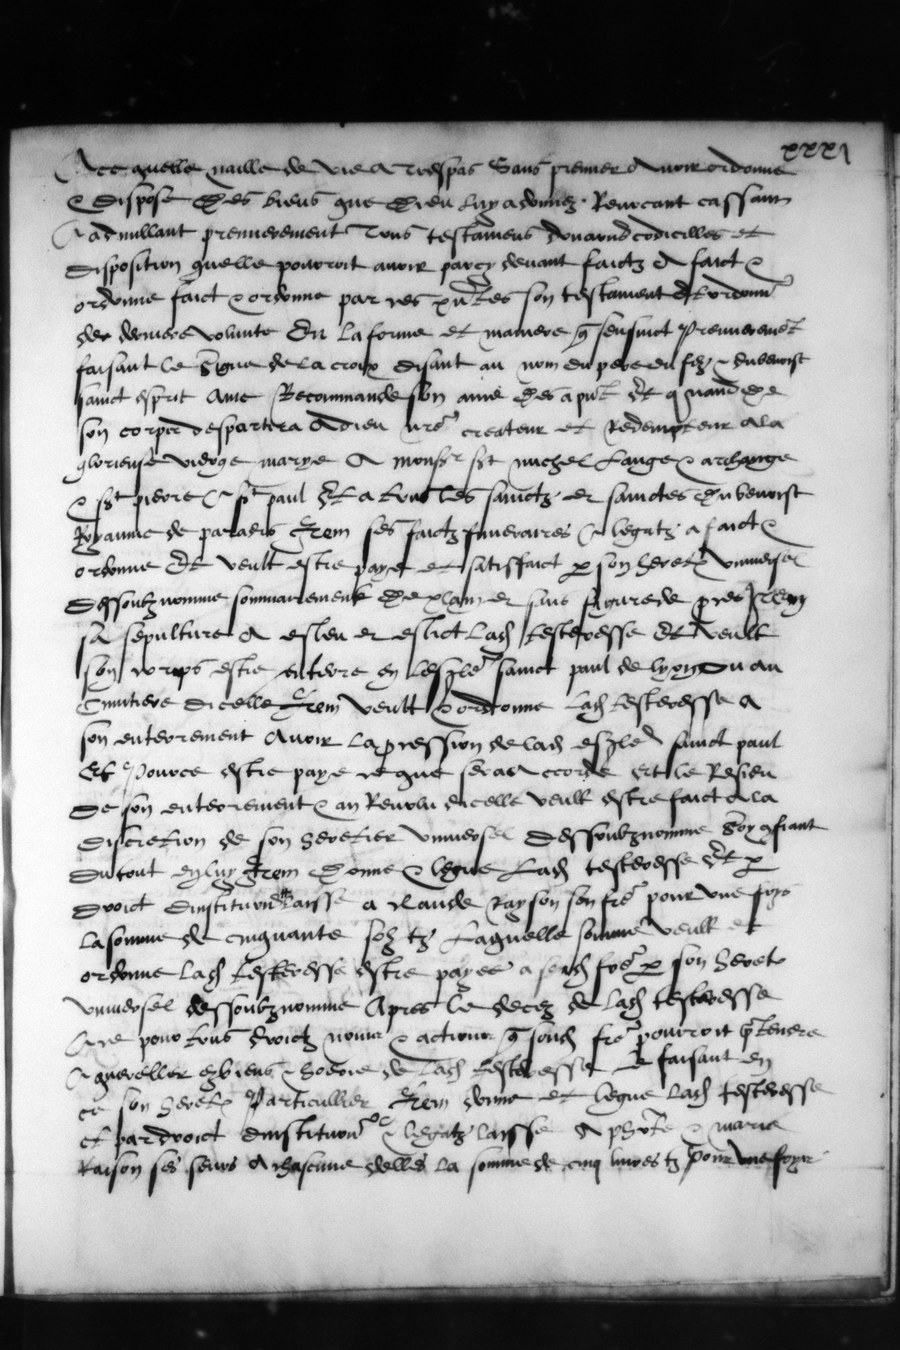 xxxi
Acc quelle naille de vie a trespas Sans premier avoir ordonne
& dispose des biens que dieu luy a donnez. Revocant cassant
& adnullant premierement tous testamens donations codicilles et
disposition quelle pourroit avoir par cy devant faictz a faict &
ordonne faict & ordonne par ces pntes son testament et ordonn
de derniere volunte En la forme et maniere q sensuict Premierement
faisant le Signe de la croix disant au nom du pere du filz & du benoist
sainct esprit Ame Recommande son ame des a pnt et quand de
son corps despartira A dieu nre createur et Redempteur a la
glorieuse vierge marye A monsr sct michel Lange & archange
& sct pierre & sct paul Et a tous les sainctz et sainctes du benoist
Royaume de paradis Item ses faictz funeraires & legatz a faict &
ordonne Et veult estre paye et satisffaict p son heretr universel
Dessoubz nomme sommairement de plain et sans figure de proces Item
sa sepulture A esleu et eslict Lad testeresse Et veult
son corps estre enterre en lesgle sainct paul de lyon ou au
Cimitiere dicelle Item veult & ordonne Lad testeresse a
son enterrement Avoir La procession de lad esgle sainct paul
Et Pource estre paye ce que sera accorde Et le Residu
De son enterrement & an Revolu dicelle veult estre faict a la
discretion de son heretier universel Dessoubz nomme Soy confiant
Du tout en luy Item Donne & legue Lad testeresse Et p
droict dinstitution Laisse a claude Rayson son fre pour une foys
La somme de cinquante solz tz Laquelle somme veult et
ordonne Lad testeresse estre payee a sond fre p son heretr
universel dessoubz nomme Apres le decez de Lad testeresse
& ce pour tous droictz noms & actions q sond fre pourroit ptendre
& quereller es biens & hoerie de Lad testeresse Le faisant en
ce son heretr Particullier Item donne et legue Lad testeresse
et par droict dinstitution & legatz laisse A phte & marie
Raison ses seurs A chascune delles La somme de cinq livres tz Pour une foys